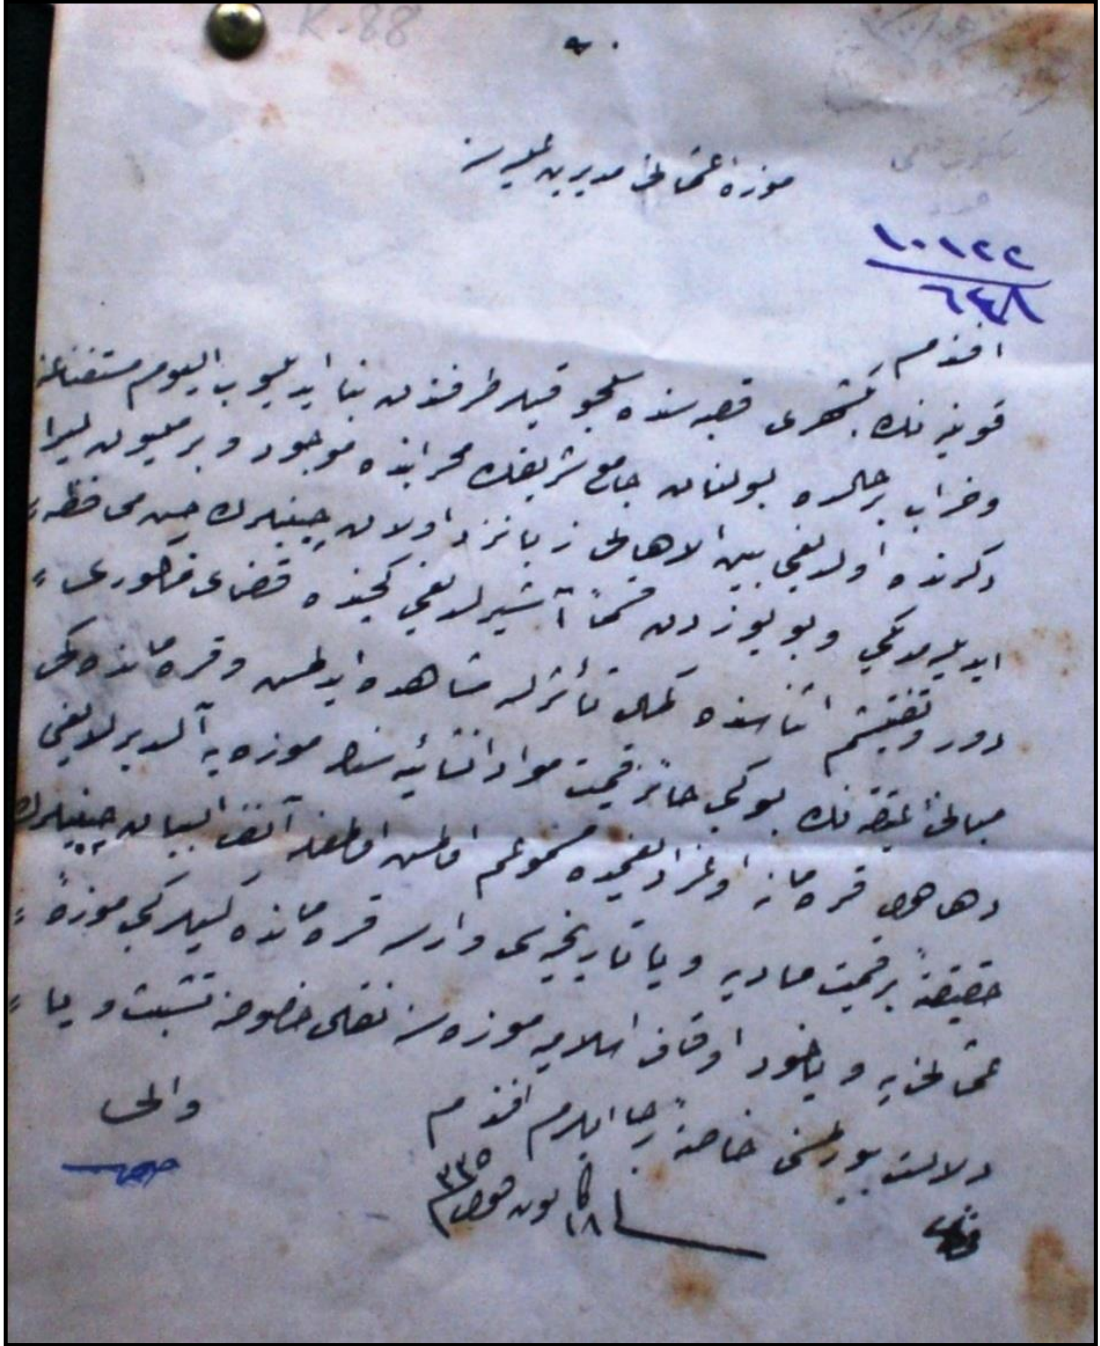 K.88
موزهٔ عثمانی مدیریت علیه‌سنه
١٠١٢٢
٦٤٨
افندم
قونیه‌نك بكشهری قصبه‌سنده سلجوقیلر طرفندن بنا ایدیلوب الیوم مستغنای
و خراب بر حالده بولنان جامع شریفك محرابنده موجود و بر ملیون لیرا
دكرنده اولدیغی بین الاهالی زبانزد اولان چینیلرك حسن محافظه
ایدیلمدیكی و بو یوزدن قسماً آشیرلدیغی كچنده قضای مذكوری
دور و تفتیشم اثناسنده كمال تأثرله مشاهده ایدلمش و قره‌مانده‌كی
مبانیٔ عتیقه‌نك بو كبی حائز قیمت مواد انشائیه‌سنك موزه‌یه آلدیرلدیغی
دها قره‌مانه اوغرادیغمده مسموعم اولمش اولمغله آنف البیان چینیلرك
حقیقةً بر قیمت مادیه و یا تاریخیه‌سی وارسه قره‌مانده‌كیلر كبی موزهٔ
عثمانی‌یه و یاخود اوقاف اسلامیه موزه‌سنه نقلی خصوصنه تشبث و یا
دلالت بیورلمسنی خاصةً رجا ایدرم افندم
١٨ كانون ٣٣٥
والی